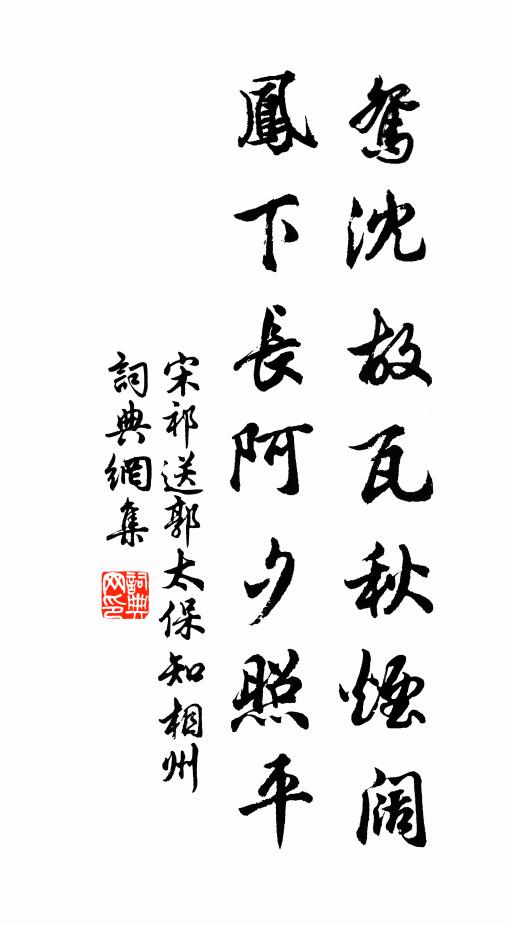 鴛沈故瓦秋煙闊
鳳下長阿夕照平
宋祁送郭太保知相州
詞典網集
詞典网印